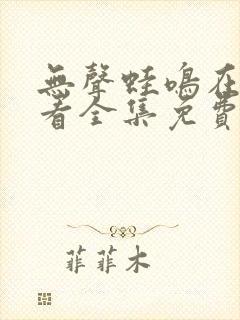 無聲蛙鳴在
看全集免費
菲菲木